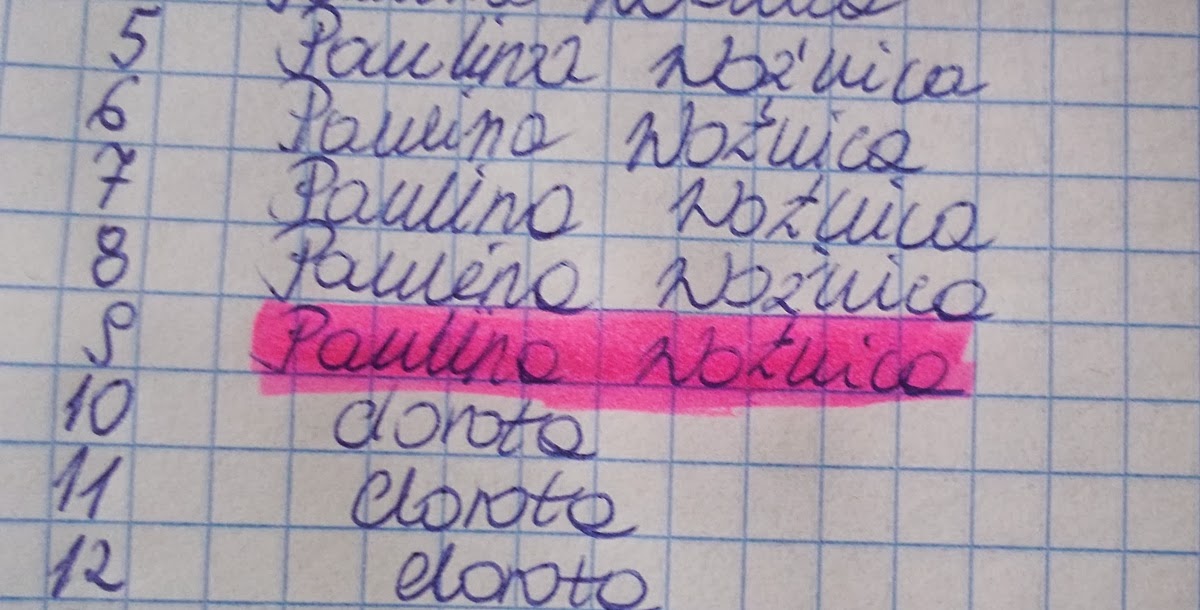 5 Paulina Woźnica
6 Paulina Woźnica
7 Paulina Woźnica
8 Paulina Woźnica
9 Paulina Woźnica
10 dorota
11 dorota
12 dorota